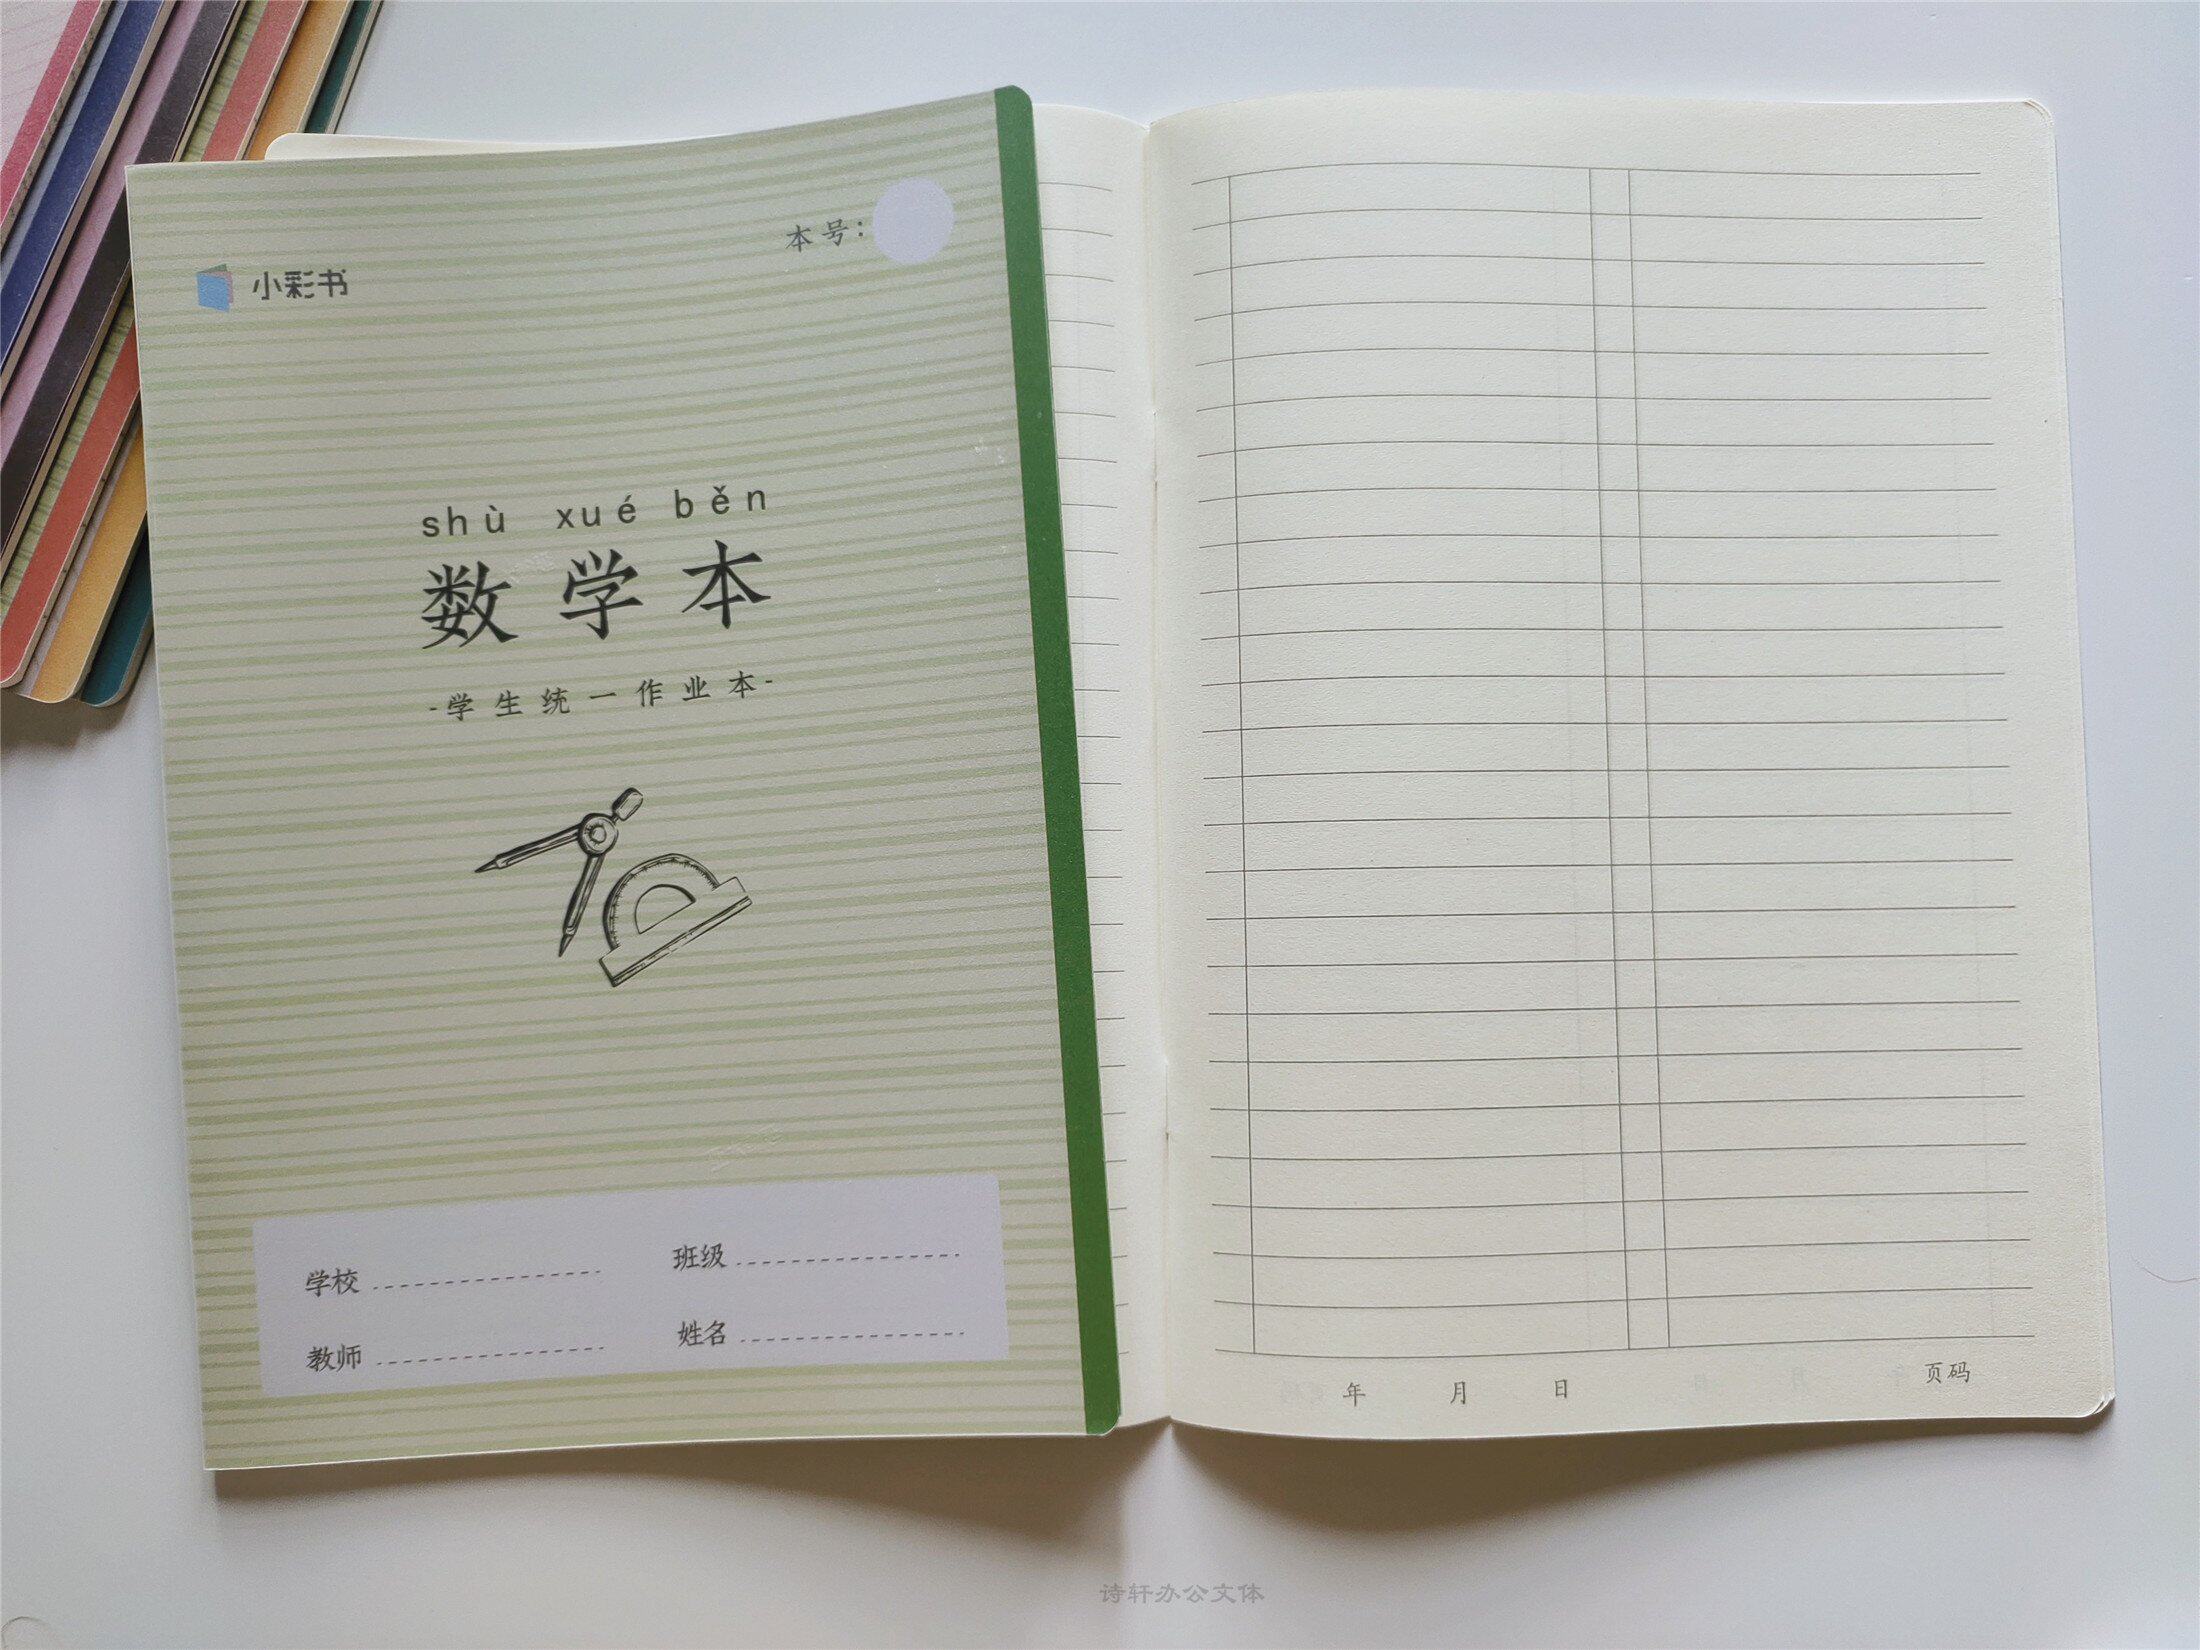 本号：
小彩书
shù xué běn
数学本
-学生统一作业本-
学校
班级
教师
姓名
年 月 日
页码
诗轩办公文体